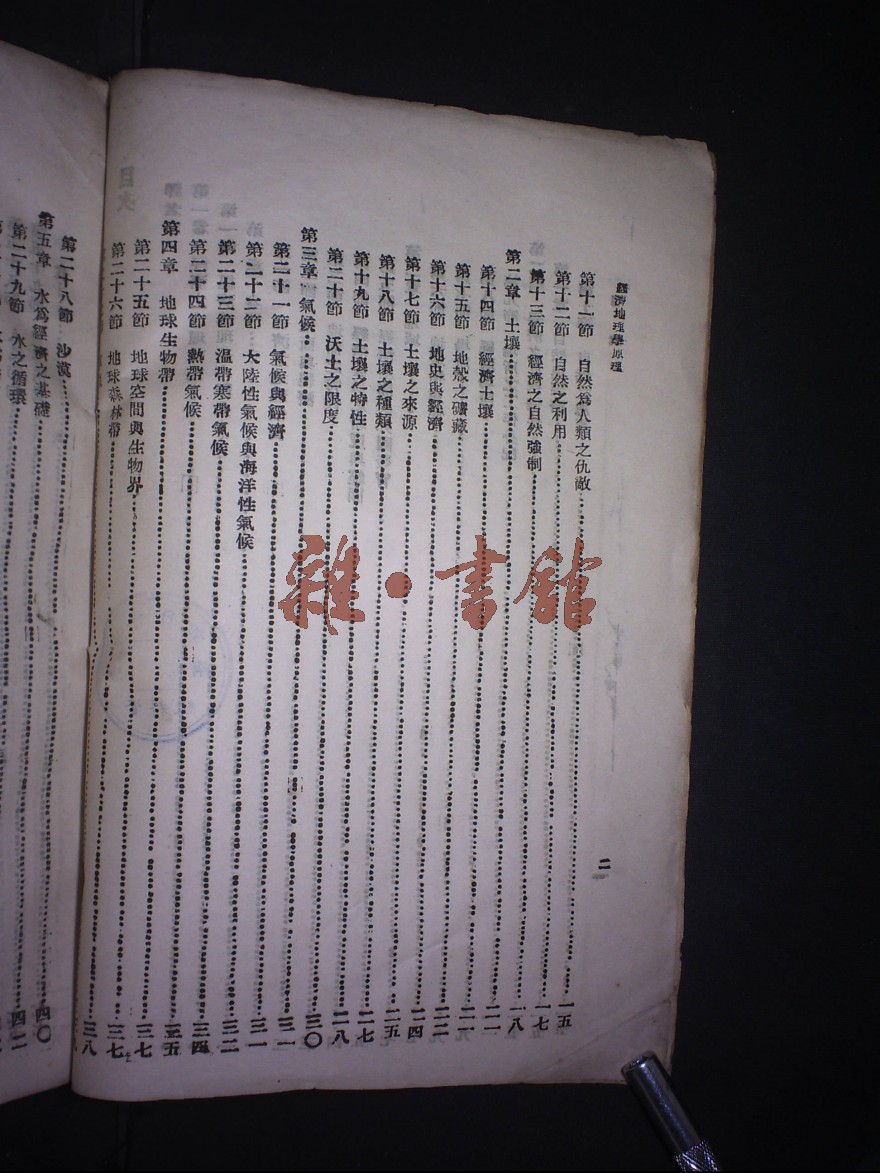 經濟地理學原理
二
第十一節 自然爲人類之仇敵 一五
第十二節 自然之利用 一七
第十三節 經濟之自然強制 一八
第二章 土壤
第十四節 經濟土壤 二一
第十五節 地殼之礦藏 二一
第十六節 地史與經濟 二二
第十七節 土壤之來源 二四
第十八節 土壤之種類 二五
第十九節 土壤之特性 二七
第二十節 沃土之限度 二八
第三章 氣候 三〇
第二十一節 氣候與經濟 三一
第二十二節 大陸性氣候與海洋性氣候 三一
第二十三節 溫帶寒帶氣候 三二
第二十四節 熱帶氣候 三四
第四章 地球生物帶 三五
第二十五節 地球空間與生物界 三七
第二十六節 地球森林帶 三七
三八
第二十八節 沙漠
第五章 水爲經濟之基礎 四〇
第二十九節 水之循環 四二
雜·書館